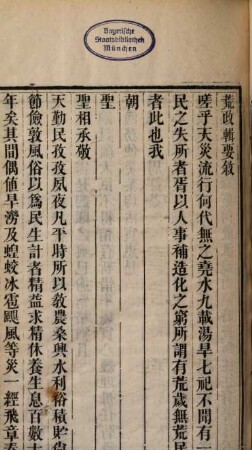 Bayerische
Staatsbibliothek
München
荒政輯要敘
嗟乎天災流行何代無之堯水九載湯旱七祀不聞有一
民之失所者胥以人事補造化之窮所謂有荒歲無荒民
者此也我
朝
聖
聖相承敬
天勤民孜孜夙夜凡平時所以敎農桑興水利裕積貯尚
節儉敦風俗以爲民生計者精益求精休養生息百數十
年矣其間偶値旱澇及蝗蛟冰雹颶風等災一經飛章奏